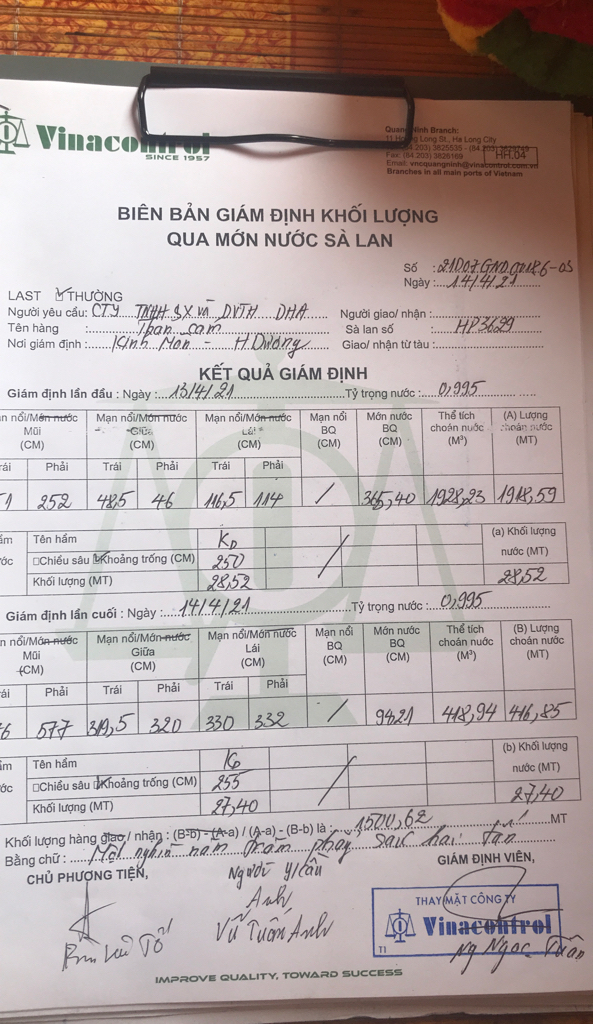 Vinacontrol
SINCE 1957
Quang Ninh Branch:
11 Hoang Long St., Ha Long City
Fax: (84.203) 3826169
Email: vncquangninh@vinacontrol.com.vn
Branches in all main ports of Vietnam
HH.04
BIÊN BẢN GIÁM ĐỊNH KHỐI LƯỢNG
QUA MỚN NƯỚC SÀ LAN
Số : 21D07.GND.00186-03
Ngày : 14/4/21
LAST THƯỜNG
Người yêu cầu: CTY TNHH SX và DVTH DHA Người giao/ nhận :
Tên hàng : Than cám Sà lan số : HP3629
Nơi giám định : Kinh Môn - H Dương Giao/ nhận từ tàu :
KẾT QUẢ GIÁM ĐỊNH
Giám định lần đầu : Ngày : 13/4/21 Tỷ trọng nước : 0,995
Mạn nổi/Mớn nước Mạn nổi/Mớn nước Mạn nổi/Mớn nước Mạn nổi Mớn nước Thể tích (A) Lượng
Mũi Giữa Lái BQ BQ choán nước choán nước
(CM) (CM) (CM) (CM) (CM) (M³) (MT)
Phải Trái Phải Trái Phải
252 48,5 46 116,5 114 / 365,40 1928,23 1918,59
Tên hầm KĐ (a) Khối lượng
Chiều sâu Khoảng trống (CM) 250 nước (MT)
Khối lượng (MT) 28,52 28,52
Giám định lần cuối : Ngày : 14/4/21 Tỷ trọng nước : 0,995
Mạn nổi/Mớn nước Mạn nổi/Mớn nước Mạn nổi/Mớn nước Mạn nổi Mớn nước Thể tích (B) Lượng
Mũi Giữa Lái BQ BQ choán nước choán nước
(CM) (CM) (CM) (CM) (CM) (M³) (MT)
Phải Trái Phải Trái Phải
577 319,5 320 330 332 / 94,21 418,94 416,85
Tên hầm (b) Khối lượng
Chiều sâu Khoảng trống (CM) 255 nước (MT)
Khối lượng (MT) 27,40 27,40
Khối lượng hàng giao / nhận : (B-b) - (A-a) / (A-a) - (B-b) là : 1500,62 MT
Bằng chữ : Một nghìn năm trăm phẩy sáu hai tấn
CHỦ PHƯƠNG TIỆN, Người y/cầu GIÁM ĐỊNH VIÊN,
Anh
Vũ Tuấn Anh
THAY MẶT CÔNG TY
Vinacontrol
T1
Ng Ngọc Tuân
IMPROVE QUALITY, TOWARD SUCCESS